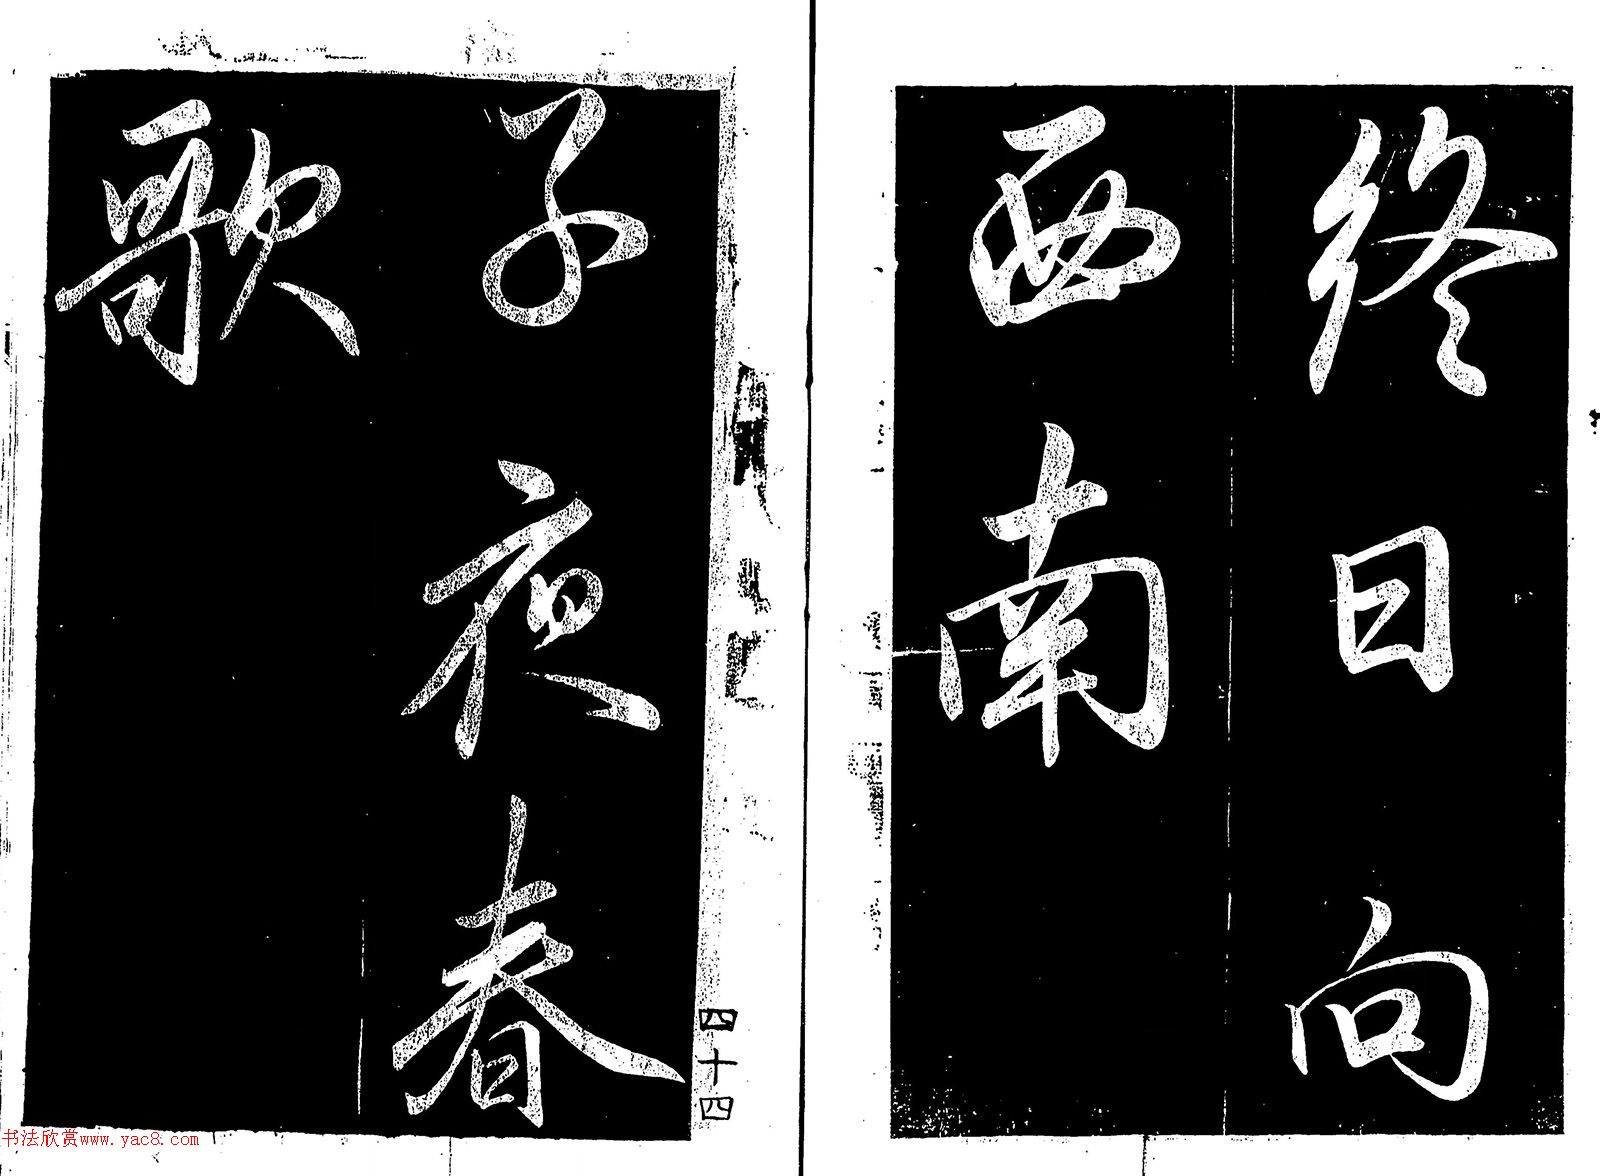 终日向
西南
子夜春
歌
四十四
书法欣赏www.yac8.com